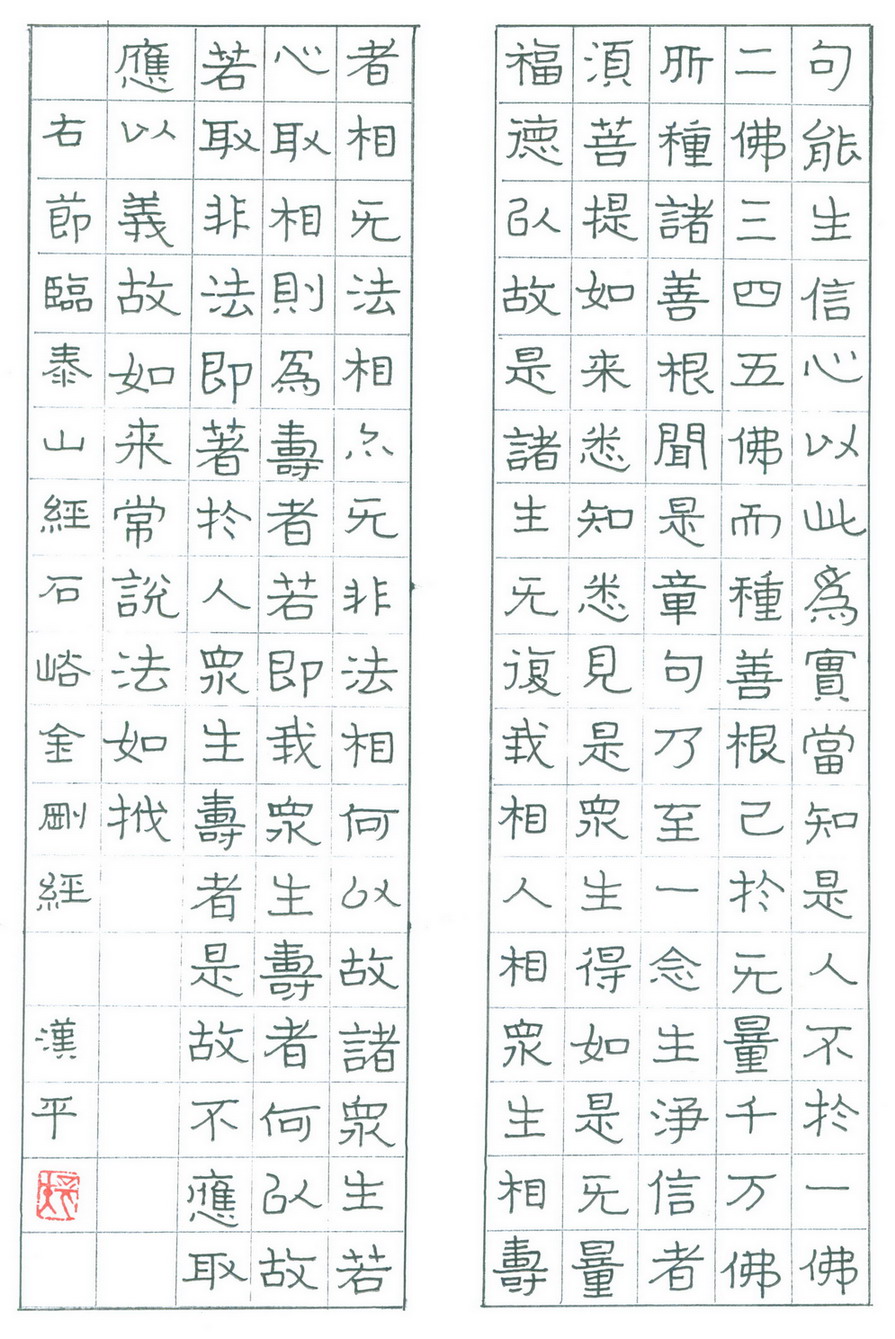 句能生信心以此為實當知是人不於一佛
二佛三四五佛而種善根己於无量千万佛
所種諸善根聞是章句乃至一念生淨信者
須菩提如来悉知悉見是衆生得如是无量
福德以故是諸生无復我相人相衆生相壽
者相无法相亦无非法相何以故諸衆生若
心取相則為壽者若即我衆生壽者何以故
若取非法即著於人衆生壽者是故不應取
應以義故如来常說法如栰
右節臨泰山經石峪金剛經 漢平